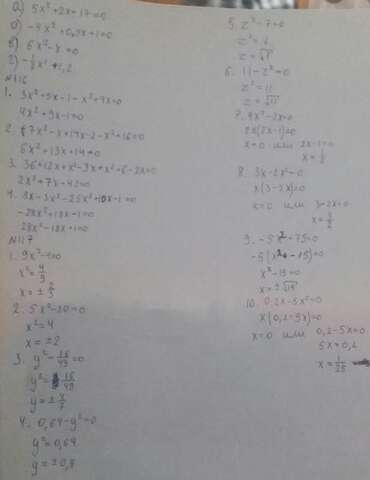 а) 5x²+2x+17=0
б) -4x²+0,5x+1=0
в) 6x²-x=0
г) -⅛x²+1,2
№116
1. 3x²+5x-1-x²+4x=0
4x²+9x-1=0
2. 7x²-x+14x-2-x²+16=0
6x²+13x+14=0
3. 36+12x+x²-3x+x²-6-2x=0
2x²+7x-42=0
4. 8x-3x²-25x²+10x-1=0
-28x²+18x-1=0
28x²-18x+1=0
№117
1. 9x²-4=0
x²=4/9
x=±2/3
2. 5x²-20=0
x²=4
x=±2
3. y²-16/49=0
y²=16/49
y=±4/7
4. 0,64-y²=0
y²=0,64
y=±0,8
5. z²-7=0
z²=7
z=√7
6. 11-z²=0
z²=11
z=√11
7. 4x²-2x=0
2x(2x-1)=0
x=0 или 2x-1=0
x=½
8. 3x-2x²=0
x(3-2x)=0
x=0 или 3-2x=0
x=3/2
9. -5x²+75=0
-5(x²-15)=0
x²-15=0
x=±√15
10. 0,2x-5x²=0
x(0,2-5x)=0
x=0 или 0,2-5x=0
5x=0,2
x=1/25